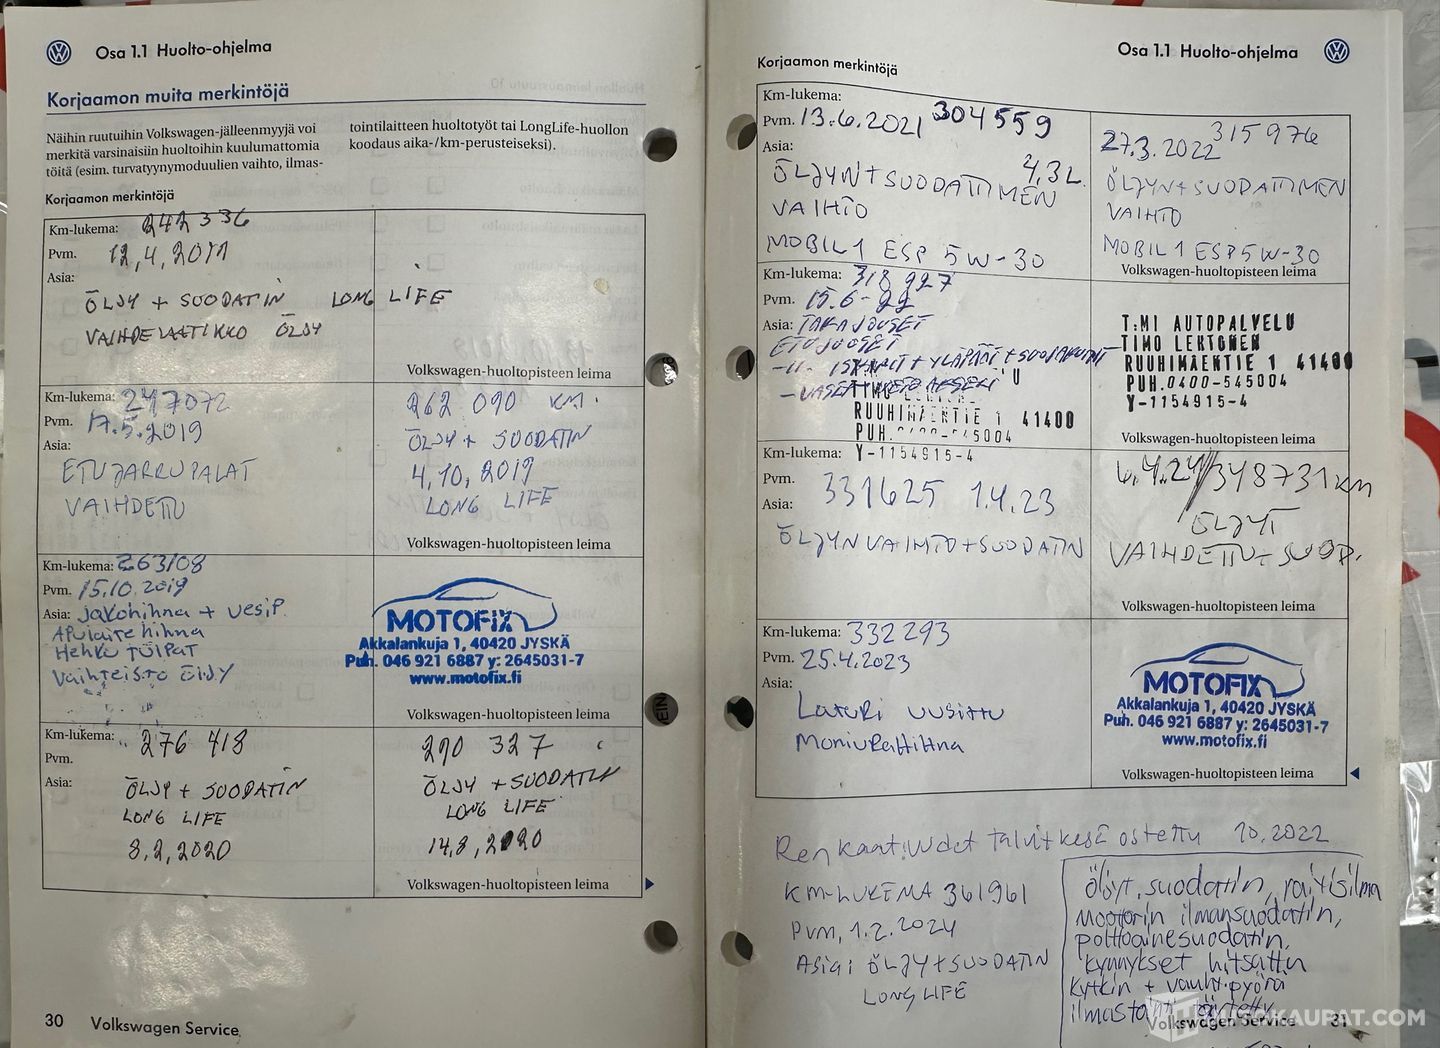 Osa 1.1 Huolto-ohjelma
Korjaamon muita merkintöjä
Näihin ruutuihin Volkswagen-jälleenmyyjä voi
merkitä varsinaisiin huoltoihin kuulumattomia
töitä (esim. turvatyynymoduulien vaihto, ilmas-
tointilaitteen huoltotyöt tai LongLife-huollon
koodaus aika-/km-perusteiseksi).
Korjaamon merkintöjä
Km-lukema: 242336
Pvm. 12,4,2019
Asia:
ÖLJY + SUODATIN LONG LIFE
VAIHDELAATIKKO ÖLJY
Volkswagen-huoltopisteen leima
Km-lukema: 247072
Pvm. 17.5.2019
Asia:
ETUJARRUPALAT
VAIHDETTU
262 090 KM.
ÖLJY + SUODATIN
4,10,2019
LONG LIFE
Volkswagen-huoltopisteen leima
Km-lukema: 263108
Pvm. 15.10.2019
Asia: Jakohihna + vesip.
Apulaite hihna
Hehku TULPAT
Vaihteisto öljy
MOTOFIX
Akkalankuja 1, 40420 JYSKÄ
Puh. 046 921 6887 y: 2645031-7
www.motofix.fi
Volkswagen-huoltopisteen leima
Km-lukema: 276 418
Pvm.
Asia: ÖLJY + SUODATIN
LONG LIFE
8,2,2020
290 327
ÖLJY + SUODATIN
LONG LIFE
14,8,2020
Volkswagen-huoltopisteen leima
30 Volkswagen Service
Osa 1.1 Huolto-ohjelma
Korjaamon merkintöjä
Km-lukema: 304559
Pvm. 13.6.2021
Asia:
ÖLJYN + SUODATTIMEN 4,3L.
VAIHTO
MOBIL 1 ESP 5W-30
315976
27.3.2022
ÖLJYN + SUODATTIMEN
VAIHTO
MOBIL 1 ESP 5W-30
Volkswagen-huoltopisteen leima
Km-lukema: 318927
Pvm. 15.6-22
Asia: TAKAJOUSET
ETUJOUSET
RUUHIMÄENTIE 1 41400
PUH. 545004
Y-1154915-4
T:MI AUTOPALVELU
TIMO LEHTONEN
RUUHIMÄENTIE 1 41400
PUH.0400-545004
Y-1154915-4
Volkswagen-huoltopisteen leima
Km-lukema:
Pvm. 331625 1.4.23
Asia:
ÖLJYNVAIHTO + SUODATIN
6.4.24 / 348731 KM
ÖLJYT
VAIHDETTU + SUOD.
Volkswagen-huoltopisteen leima
Km-lukema: 332293
Pvm. 25.4.2023
Asia:
Laturi uusittu
Moniurahihna
MOTOFIX
Akkalankuja 1, 40420 JYSKÄ
Puh. 046 921 6887 y: 2645031-7
www.motofix.fi
Volkswagen-huoltopisteen leima
Renkaat uudet talvi+kesä ostettu 10.2022
KM-LUKEMA 361961
Pvm, 1.2.2024
Asia: ÖLJY + SUODATIN
LONG LIFE
Öljyt, suodatin, raitisilma
moottorin ilmansuodatin,
polttoainesuodatin,
kynnykset hitsattu
kytkin + vauhtipyörä
ilmastointi täytetty
Volkswagen Service 31